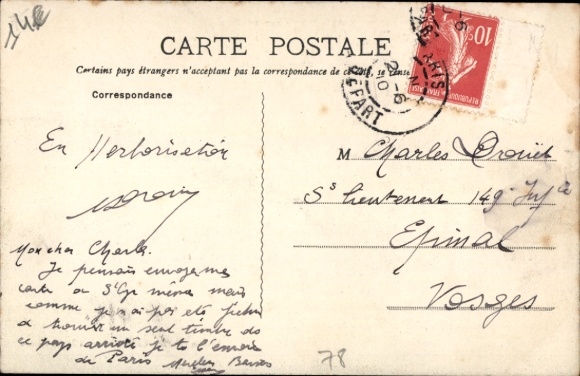 14e
CARTE POSTALE
Certains pays étrangers n'acceptant pas la correspondance de ce côté, se rense
Correspondance
En Herborisation
Mon cher Charles.
Je pensais envoyer ma
carte de St Cyr même mais
comme je n'ai pas été
à trouver un seul timbre ds
ce pays arriéré je te l'envoie
de Paris
10c
REPUBLIQUE FRANÇAISE
PARIS
DEPART
M Charles Drouet
Ss lieutenant 149e Inf ie
Epinal
Vosges
78